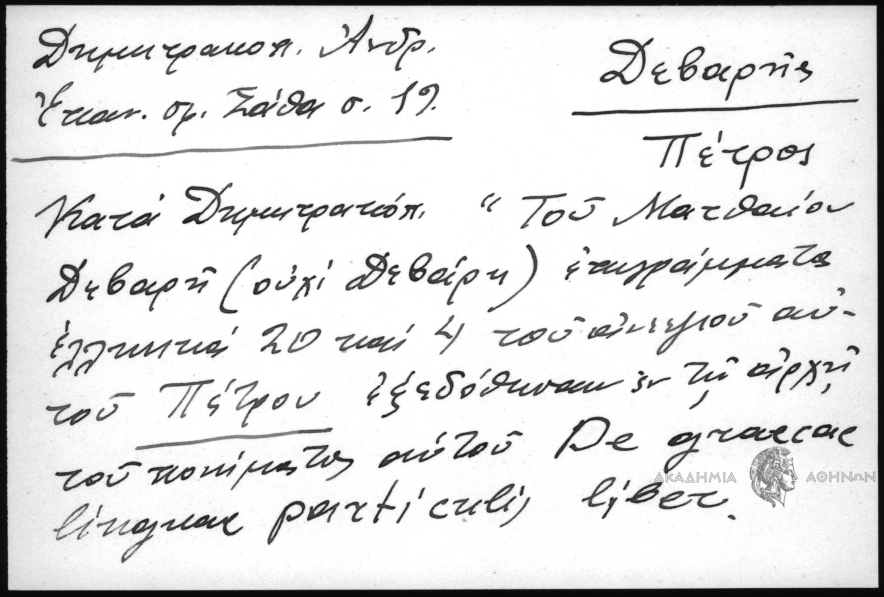 Δημητρακοπ. Ἀνδρ.
Ἐπαν. σφ. Σάθα σ. 19.
Δεβαρῆς
Πέτρος
Κατά Δημητρακόπ. "Τοῦ Ματθαίου
Δεβαρῆ (οὐχί Δεβάρη) ἐπιγράμματα
ἑλληνικά 20 καί 4 τοῦ ἀνεψιοῦ αὐ-
τοῦ Πέτρου ἐξεδόθησαν ἐν τῇ ἀρχῇ
τοῦ πονήματος αὐτοῦ De graecae
linguae particulis liber.
ΑΚΑΔΗΜΙΑ ΑΘΗΝΩΝ